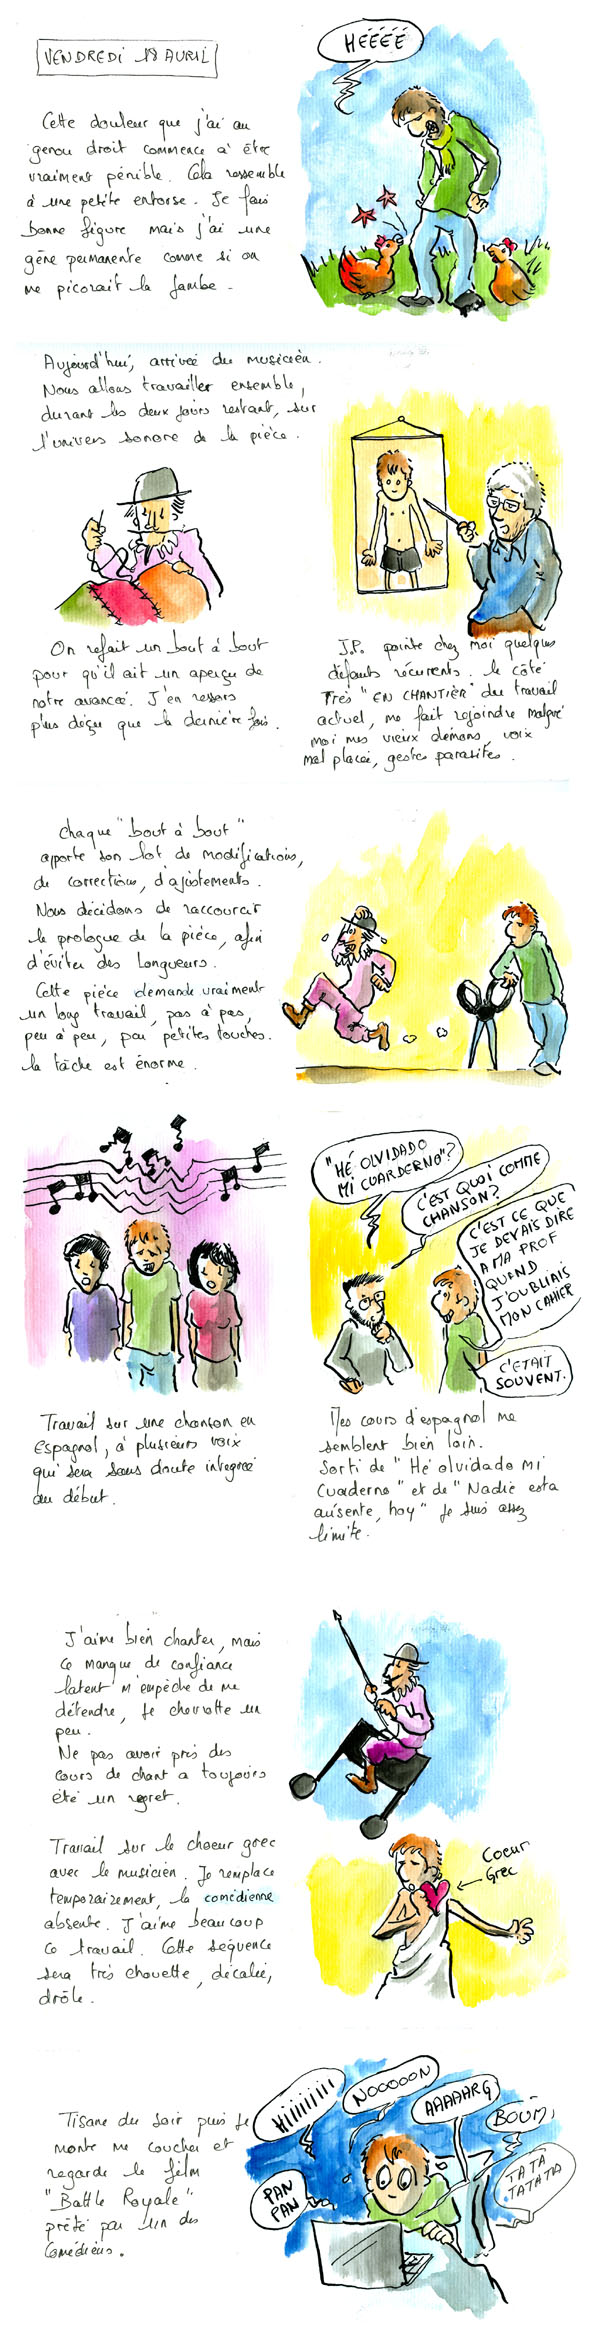 VENDREDI 18 AVRIL
HÉÉÉÉ
Cette douleur que j'ai au
genou droit commence à être
vraiment pénible. Cela ressemble
à une petite entorse. Je fais
bonne figure mais j'ai une
gêne permanente comme si on
me picorait la jambe.
Aujourd'hui, arrivée du musicien.
Nous allons travailler ensemble,
durant les deux jours restant, sur
l'univers sonore de la pièce.
On refait un bout à bout
pour qu'il ait un aperçu de
notre avancée. J'en ressors
plus déçu que la dernière fois.
J.P. pointe chez moi quelques
défauts récurrents. le côté
très "EN CHANTIER" du travail
actuel, me fait rejoindre malgré
moi mes vieux démons, voix
mal placée, gestes parasites.
Chaque "bout à bout"
apporte son lot de modifications,
de corrections, d'ajustements.
Nous décidons de raccourcir
le prologue de la pièce, afin
d'éviter des longueurs.
Cette pièce demande vraiment
un long travail, pas à pas,
peu à peu, par petites touches.
la tâche est énorme.
"HÉ OLVIDADO
MI CUARDERNO"?
C'EST QUOI COMME
CHANSON?
C'EST CE QUE
JE DEVAIS DIRE
A MA PROF
QUAND
J'OUBLIAIS
MON CAHIER
C'ETAIT
SOUVENT.
Travail sur une chanson en
espagnol, à plusieurs voix
qui sera sans doute intégrée
au début.
Mes cours d'espagnol me
semblent bien loin.
Sorti de "Hé olvidado mi
cuaderno" et de "Nadie esta
ausente, hoy" je suis assez
limité.
J'aime bien chanter, mais
ce manque de confiance
latent m'empêche de me
détendre, je chevrotte un
peu.
Ne pas avoir pris des
cours de chant a toujours
été un regret.
Travail sur le choeur grec
avec le musicien. Je remplace
temporairement, la comédienne
absente. J'aime beaucoup
ce travail. Cette séquence
sera très chouette, décalée,
drôle.
Coeur
Grec
Tisane du soir puis je
monte me coucher et
regarde le film
"Battle Royale"
prêté par un des
Comédiens.
HIIIIIIII
NOOOOON
AAAAARG
BOUM,
PAN
PAN
TA TA
TATATA